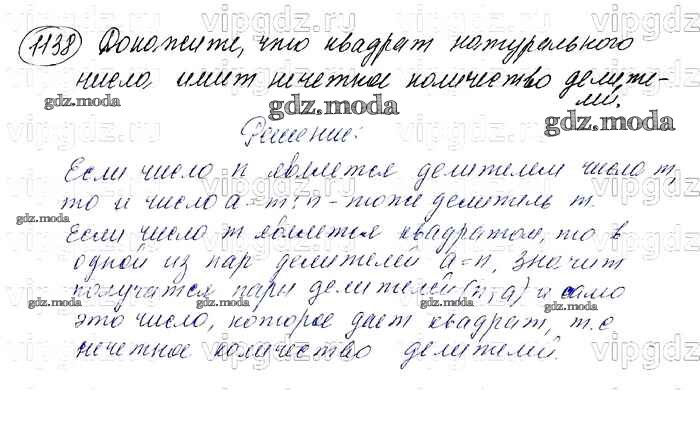 1138 Докажите, что квадрат натурального
число, имеет нечетное количество делите-
лей.
Решение:
Если число n является делителем числа m,
то и число a = m : n - тоже делитель m.
Если число m является квадратом, то в
одной из пар делителей a = n, значит
получатся пары делителей (n и a) и само
это число, которое дает квадрат, т.е
нечетное количество делителей.
vipgdz
gdz.moda